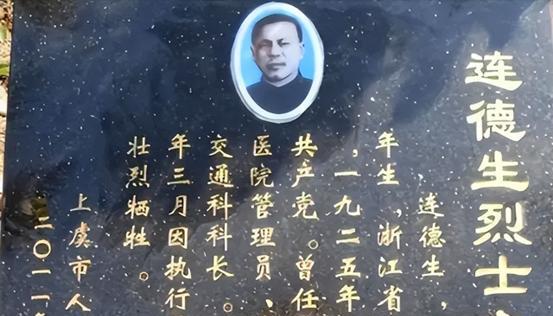 连德生烈士
连德生，
年生，浙江省
，一九二五年
共产党。曾任
医院管理员、
交通科科长。
年三月因执行
壮烈牺牲。
上虞市人
二〇一一年